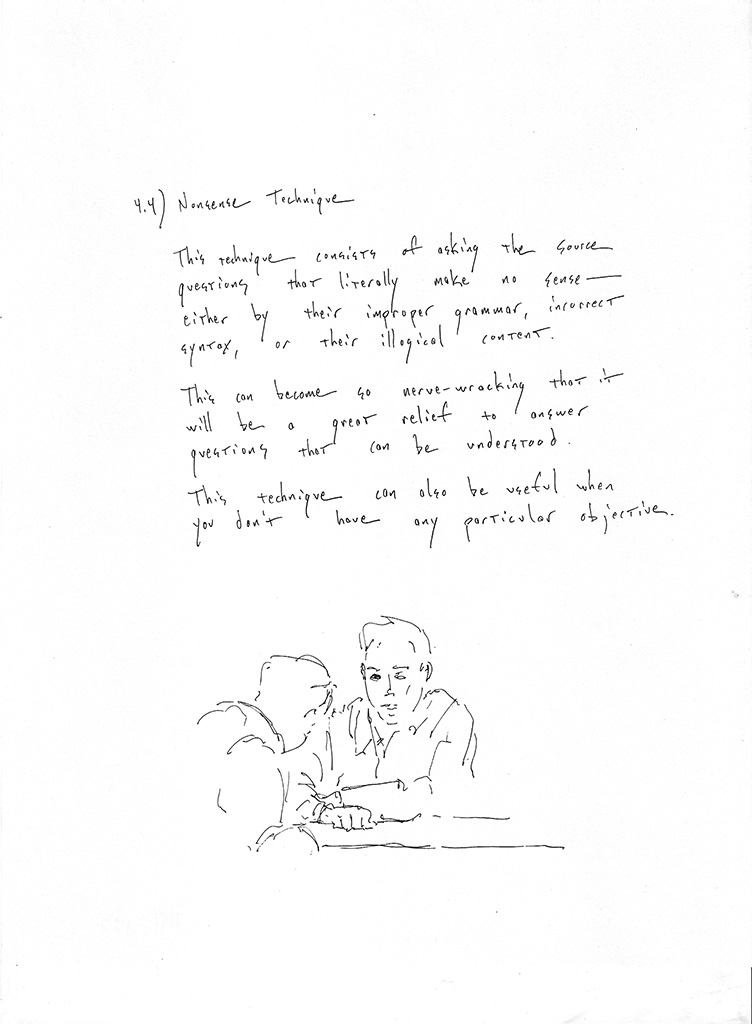 4.4) Nonsense Technique
This technique consists of asking the source
questions that literally make no sense—
either by their improper grammar, incorrect
syntax, or their illogical content.
This can become so nerve-wracking that it
will be a great relief to answer
questions that can be understood.
This technique can also be useful when
you don't have any particular objective.